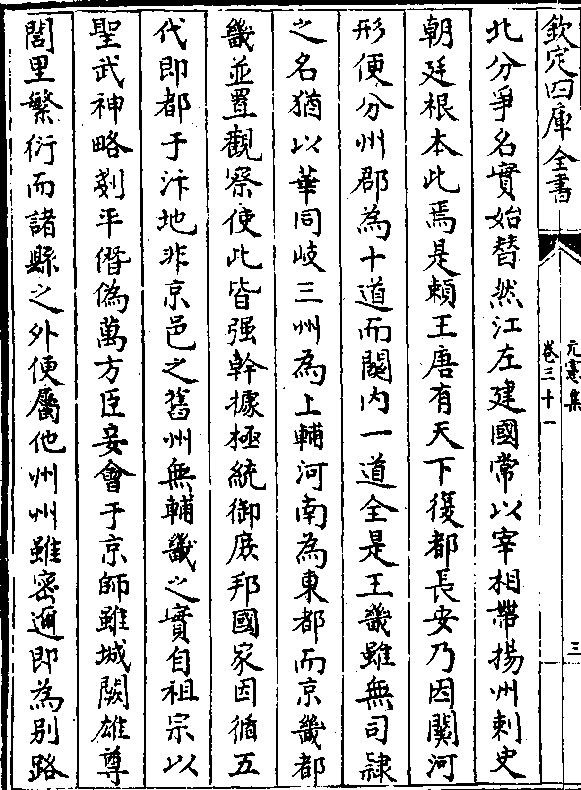 欽定四庫全書
元憲集
卷三十一
三
北分爭名實始替然江左建國常以宰相帶揚州刺史
朝廷根本此焉是頼王唐有天下復都長安乃因關河
形便分州郡為十道而關内一道全是王畿雖無司隸
之名猶以華同岐三州為上輔河南為東都而京畿都
畿並置觀察使此皆强幹據極統御庶邦國家因循五
代即都于汴地非京邑之舊州無輔畿之實自祖宗以
聖武神略剗平僭偽萬方臣妾會于京師雖城闕雄尊
閭里繁衍而諸縣之外便屬他州州雖密邇即為别路